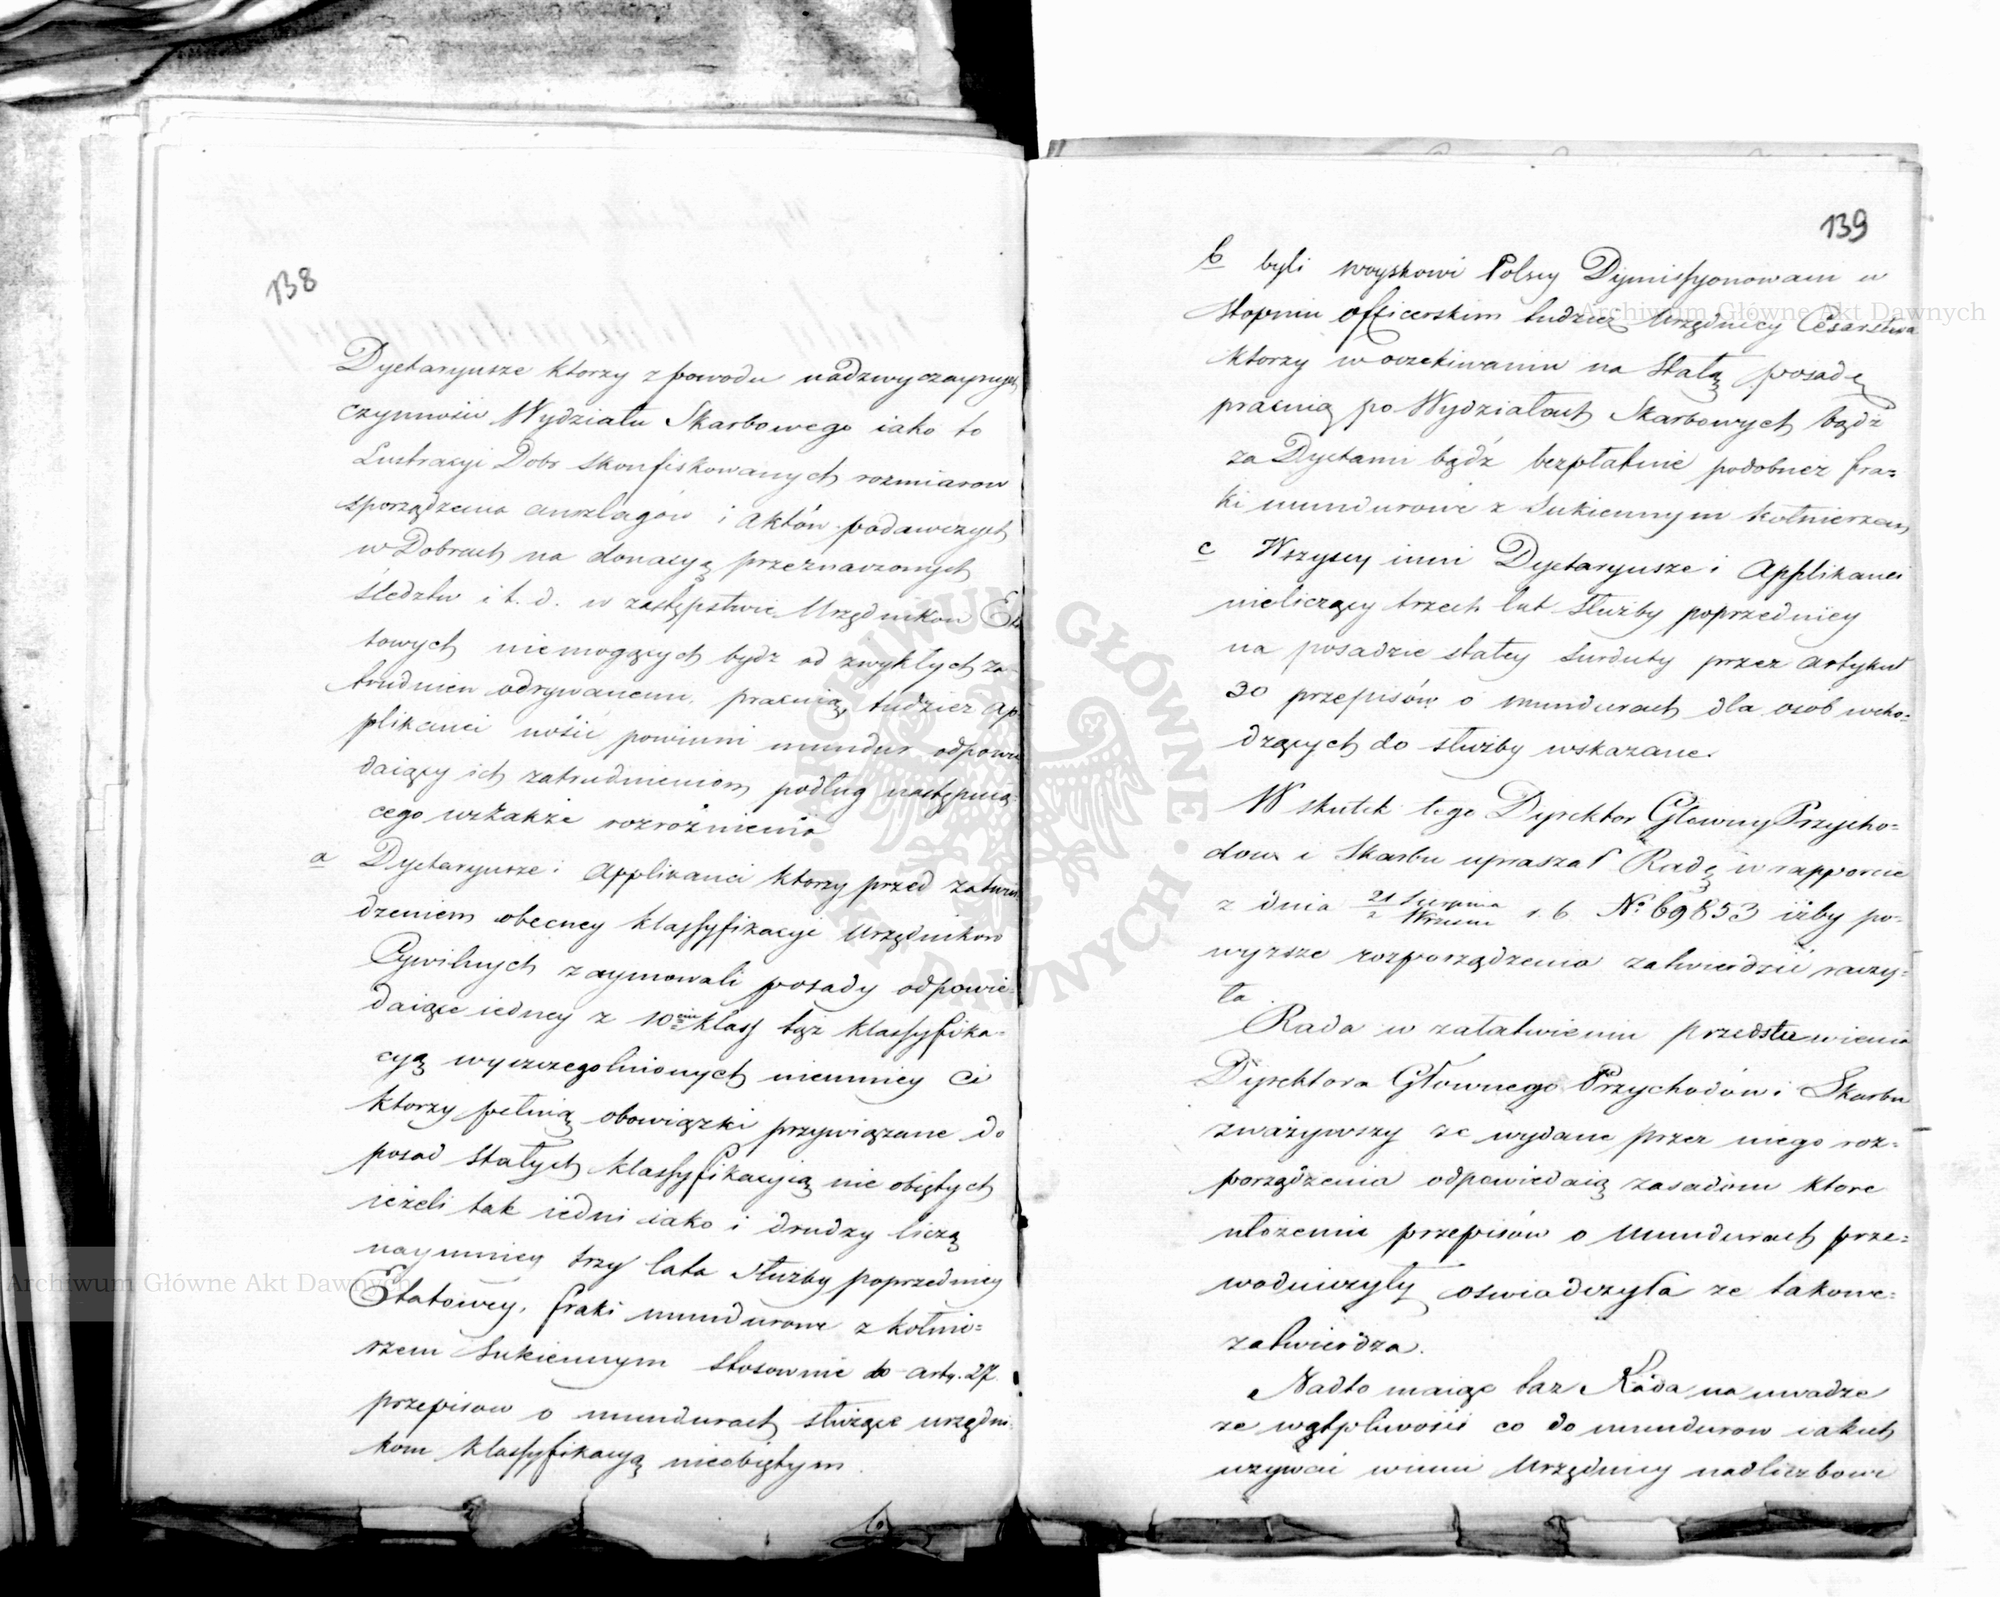 138
Dyetaryusze ktorzy z powodu nadzwyczaynych
czynności Wydziału Skarbowego iako to
Lustracyi Dobr skonfiskowanych rozmiarow
sporządzenia anszlagów i aktów podawczych
w Dobrach na donacyą przeznaczonych
śledztw i t. d. w zastępstwie Urzędnikow Eta
towych niemogących bydz od zwykłych za-
trudnien odrywanemi, pracuią, tudzież Ap
plikanci nosić powinni mundur odpowie
daiący ich zatrudnieniom podług następuią-
cego wszakże rozróżnienia
a Dyetaryusze i Applikanci ktorzy przed zatwier
dzeniem obecney klassyfikacyi Urzędnikow
Cywilnych zaymowali posady odpowie-
daiące iedney z 10ciu klass tąż klassyfika-
cyą wyszczegolnionych niemniey Ci
ktorzy pełnią obowiązki przywiązane do
posad stałych klassyfikacyią nie obiętych
ieżeli tak iedni iako i drudzy liczą
naymniey trzy lata służby poprzedniey
Etatowey, fraki mundurowe z kołnie-
rzem sukiennym stosownie do art. 27
przepisow o mundurach służące urzędni-
kom klassyfikacyą nieobiętym.
139
b byli woyskowi Polscy Dymissyonowani w
stopniu officerskim tudzież Urzędnicy Cesarstwa
ktorzy w oczekiwaniu na stałą posadę
pracuią po Wydziałach Skarbowych bądź
za Dyetami bądź bezpłatnie podobnież fra-
ki mundurowe z sukiennym kołnierzem
c Wszyscy inni Dyetaryusze i Applikanci
nieliczący trzech lat służby poprzedniey
na posadzie stałey surduty przez artykuł
30 przepisów o mundurach dla osób wcho-
dzących do służby wskazane.
W skutek tego Dyrektor Głowny Przycho-
dow i Skarbu upraszał Radę w rapporcie
z dnia 21 Sierpnia / 2 Wrzesni r. b. No 69853 iżby po-
wyższe rozporządzenia zatwierdzić raczy-
ła.
Rada w załatwieniu przedstawienia
Dyrektora Głownego Przychodów i Skarbu
zważywszy że wydane przez niego roz-
porządzenia odpowiedaią zasadom ktore
ułożeniu przepisów o mundurach prze-
wodniczyły oswiadczyła ze takowe-
zatwierdza.
Nadto maiąc taż Rada na uwadze
ze wątpliwości co do mundurow iakich
uzywać winni Urzędnicy nadliczbowi
Archiwum Główne Akt Dawnych
Archiwum Główne Akt Dawnych
ARCHIWUM GŁÓWNE AKT DAWNYCH